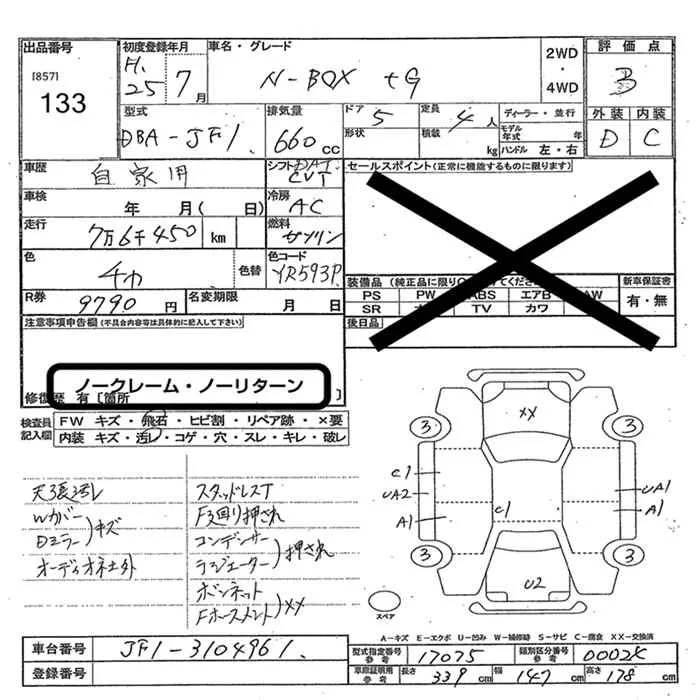 出品番号 初度登録年月 車名・グレード 2WD・4WD 評価点
[857] 133 H.25 7月 N-BOX +G 3
外装 内装
D C
型式 排気量 ドア 5 定員 4人 ディーラー・並行
DBA-JF1 660cc 形状 積載 kg モデル年式 年
ハンドル 左・右
車歴 自家用 シフト DAT CVT セールスポイント(正常に機能するものに限ります)
車検 年 月( 日) 冷房 AC
走行 7万6千450 km 燃料 ガソリン
色 チャ 色替 色コード YR593P
装備品(純正品に限り
新車保証書
PS PW ABS エアB AW 有・無
SR TV カワ
R券 9790円 名変期限 月 日
後日品
注意事項申告欄(不具合内容等は具体的に記入して下さい)
ノークレーム・ノーリターン
修復歴 有[箇所 ]
検査員記入欄
FW キズ・飛石・ヒビ割・リペア跡・×要
内装 キズ・汚レ・コゲ・穴・スレ・キレ・破レ
天張汚レ
Wカバー
Dミラー)キズ
オーディオネ土外
スタッドレスT
F廻り押され
コンデンサー
ラジエーター)押され
ボンネット
)XX
XX
3 3
C1
UA2
A1
C1
UA1
A1
3 3
U2
スペア
A-キズ E-エクボ U-凹み W-補修跡 S-サビ C-腐食 XX-交換済
車台番号 JF1-3104961
登録番号
型式指定番号 参考 17075 類別区分番号 参考
車庫証明用 参考 長さ 339cm 幅 147cm 高さ 178cm